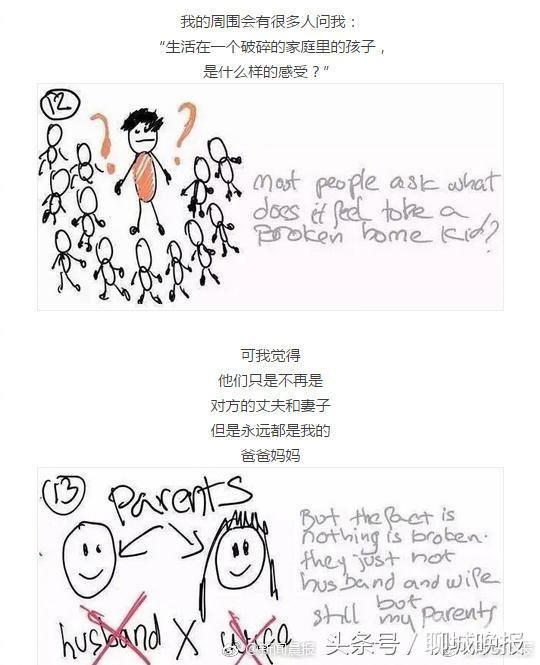 我的周围会有很多人问我：
“生活在一个破碎的家庭里的孩子，
是什么样的感受？”
12
? ?
most people ask what
does it feel to be a
broken home kid?
可我觉得
他们只是不再是
对方的丈夫和妻子
但是永远都是我的
爸爸妈妈
13
parents
But the fact is
nothing is broken.
they just not
husband and wife
but
still my parents
husband X wife
头条号/聊城晚报